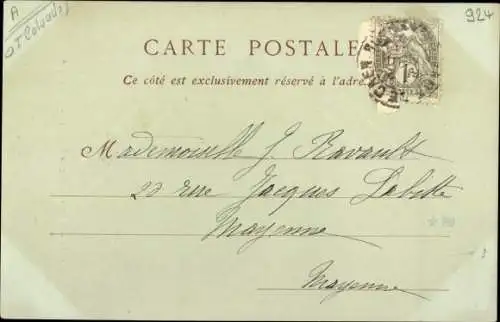 A
Calvados
924
CARTE POSTALE
Ce côté est exclusivement réservé à l'adre
CAEN
Mademoiselle J. Ravault
23 rue Jacques Labitte
Mayenne
Mayenne